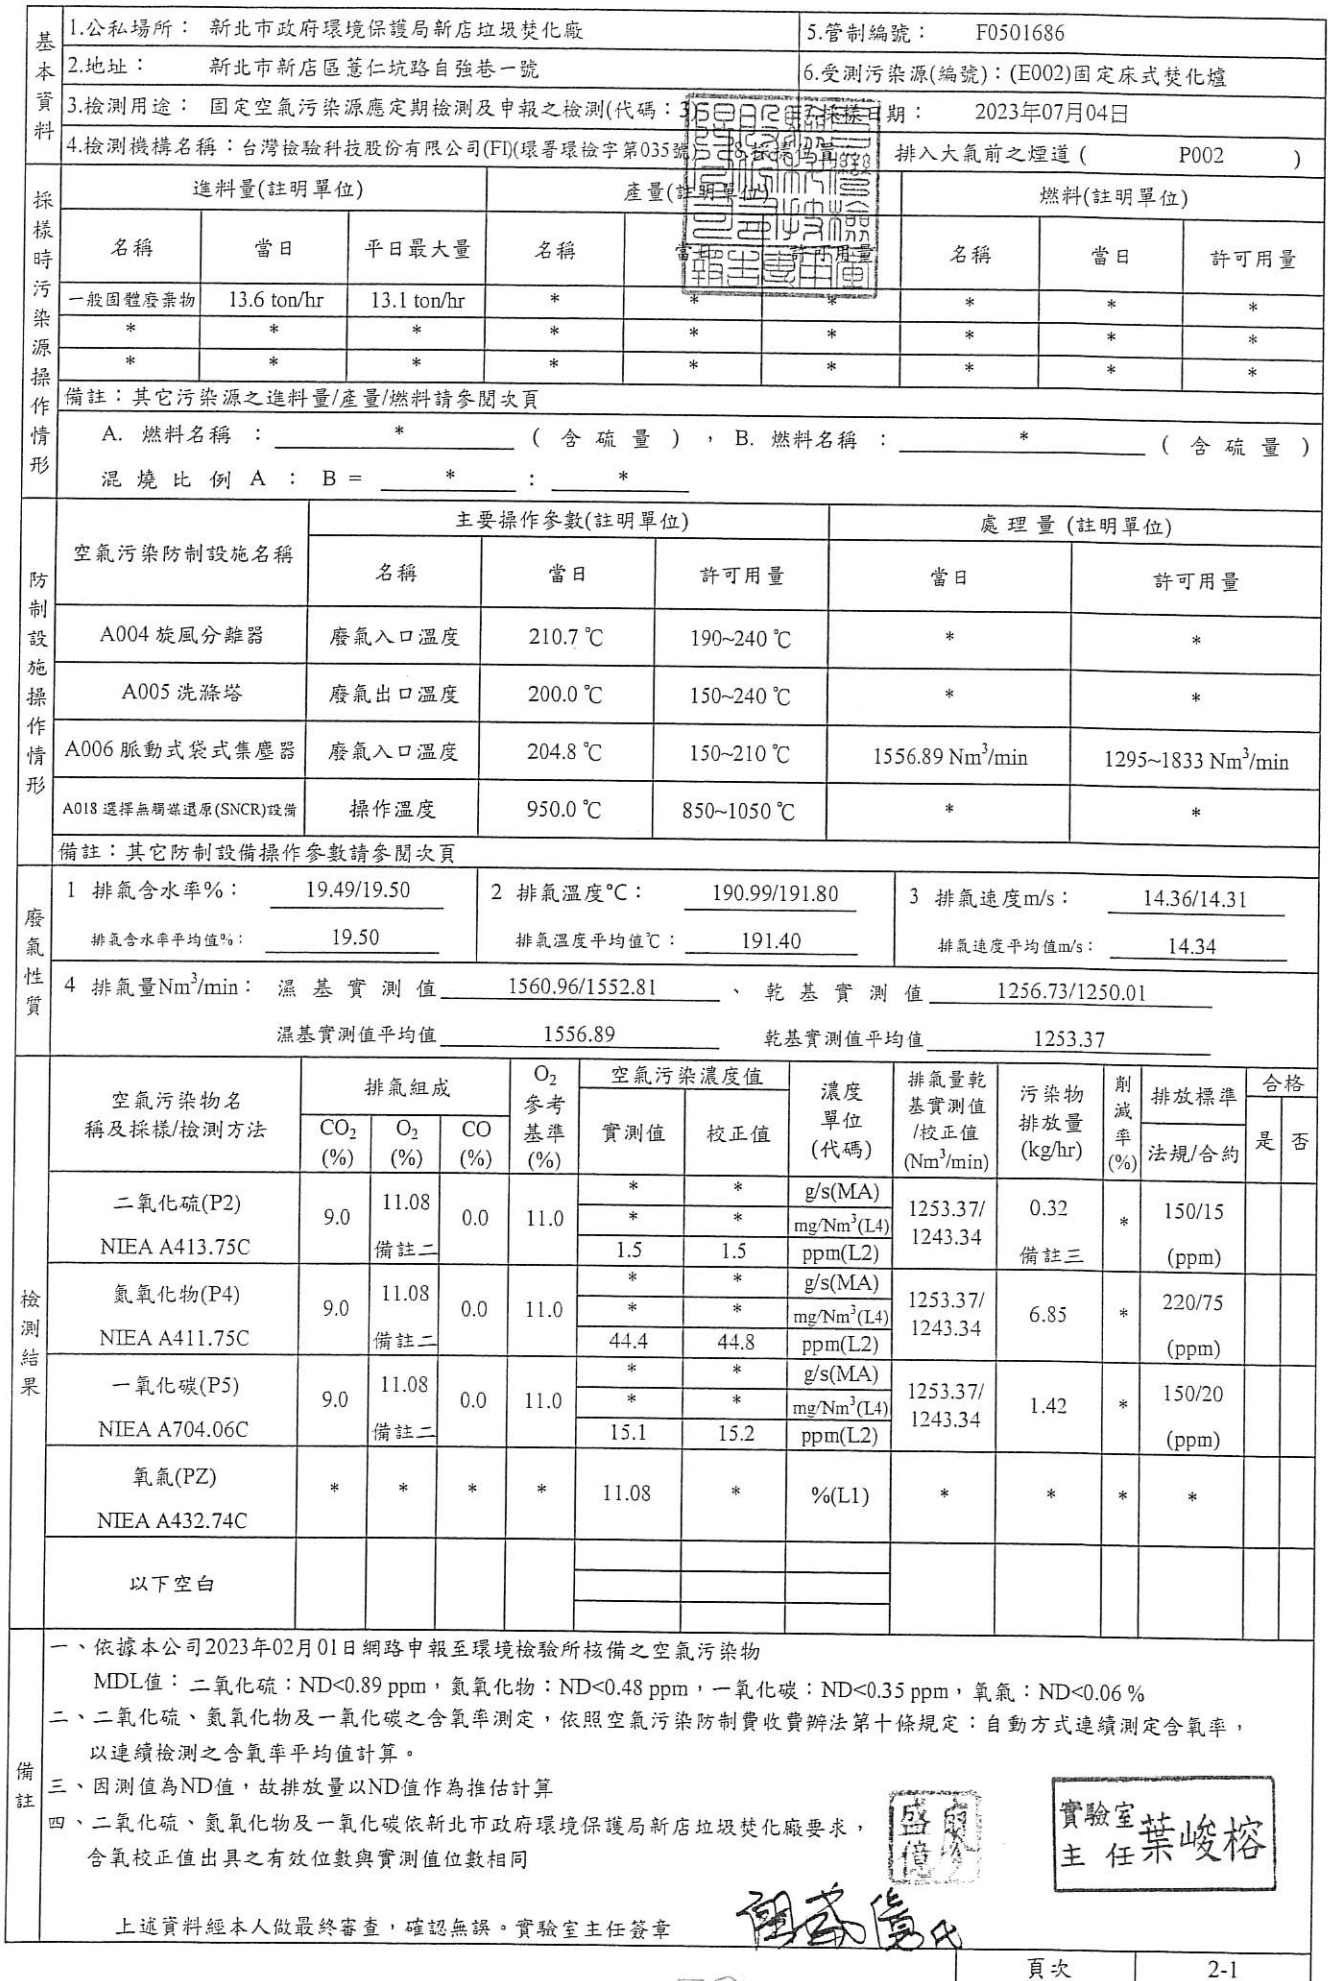 基本資料
1.公私場所： 新北市政府環境保護局新店垃圾焚化廠 5.管制編號： F0501686
2.地址： 新北市新店區薏仁坑路自強巷一號 6.受測污染源(編號)：(E002)固定床式焚化爐
3.檢測用途： 固定空氣污染源應定期檢測及申報之檢測(代碼：3) 7.採樣日期： 2023年07月04日
4.檢測機構名稱：台灣檢驗科技股份有限公司(FI)(環署環檢字第035號) 排入大氣前之煙道 ( P002 )
採樣時污染源操作情形
進料量(註明單位) 產量(註明單位) 燃料(註明單位)
名稱 當日 平日最大量 名稱 當日 許可用量 名稱 當日 許可用量
一般固體廢棄物 13.6 ton/hr 13.1 ton/hr * * * * * *
* * * * * * * * *
* * * * * * * * *
備註：其它污染源之進料量/產量/燃料請參閱次頁
A. 燃料名稱 ： * ( 含 硫 量 ) ， B. 燃料名稱 ： * ( 含 硫 量 )
混 燒 比 例 A ： B = * ： *
防制設施操作情形
空氣污染防制設施名稱 主要操作參數(註明單位) 處 理 量 (註明單位)
名稱 當日 許可用量 當日 許可用量
A004 旋風分離器 廢氣入口溫度 210.7 ℃ 190~240 ℃ * *
A005 洗滌塔 廢氣出口溫度 200.0 ℃ 150~240 ℃ * *
A006 脈動式袋式集塵器 廢氣入口溫度 204.8 ℃ 150~210 ℃ 1556.89 Nm³/min 1295~1833 Nm³/min
A018 選擇無觸媒還原(SNCR)設備 操作溫度 950.0 ℃ 850~1050 ℃ * *
備註：其它防制設備操作參數請參閱次頁
廢氣性質
1 排氣含水率%： 19.49/19.50 2 排氣溫度℃： 190.99/191.80 3 排氣速度m/s： 14.36/14.31
排氣含水率平均值%： 19.50 排氣溫度平均值℃： 191.40 排氣速度平均值m/s： 14.34
4 排氣量Nm³/min： 濕 基 實 測 值 1560.96/1552.81 、 乾 基 實 測 值 1256.73/1250.01
濕基實測值平均值 1556.89 乾基實測值平均值 1253.37
檢測結果
空氣污染物名稱及採樣/檢測方法 排氣組成 O₂參考基準(%) 空氣污染濃度值 濃度單位(代碼) 排氣量乾基實測值/校正值(Nm³/min) 污染物排放量(kg/hr) 削減率(%) 排放標準 合格
CO₂(%) O₂(%) CO(%) 實測值 校正值 法規/合約 是 否
* * g/s(MA)
二氧化硫(P2) 9.0 11.08 0.0 11.0 * * mg/Nm³(L4) 1253.37/1243.34 0.32 * 150/15
NIEA A413.75C 備註二 1.5 1.5 ppm(L2) 備註三 (ppm)
* * g/s(MA)
氮氧化物(P4) 9.0 11.08 0.0 11.0 * * mg/Nm³(L4) 1253.37/1243.34 6.85 * 220/75
NIEA A411.75C 備註二 44.4 44.8 ppm(L2) (ppm)
* * g/s(MA)
一氧化碳(P5) 9.0 11.08 0.0 11.0 * * mg/Nm³(L4) 1253.37/1243.34 1.42 * 150/20
NIEA A704.06C 備註二 15.1 15.2 ppm(L2) (ppm)
氧氣(PZ) * * * * 11.08 * %(L1) * * * *
NIEA A432.74C
以下空白
備註
一、依據本公司2023年02月01日網路申報至環境檢驗所核備之空氣污染物
MDL值：二氧化硫：ND<0.89 ppm，氮氧化物：ND<0.48 ppm，一氧化碳：ND<0.35 ppm，氧氣：ND<0.06 %
二、二氧化硫、氮氧化物及一氧化碳之含氧率測定，依照空氣污染防制費收費辦法第十條規定：自動方式連續測定含氧率，
以連續檢測之含氧率平均值計算。
三、因測值為ND值，故排放量以ND值作為推估計算
四、二氧化硫、氮氧化物及一氧化碳依新北市政府環境保護局新店垃圾焚化廠要求，
含氧校正值出具之有效位數與實測值位數相同
實驗室主任 葉峻榕
上述資料經本人做最終審查，確認無誤。實驗室主任簽章
頁次 2-1